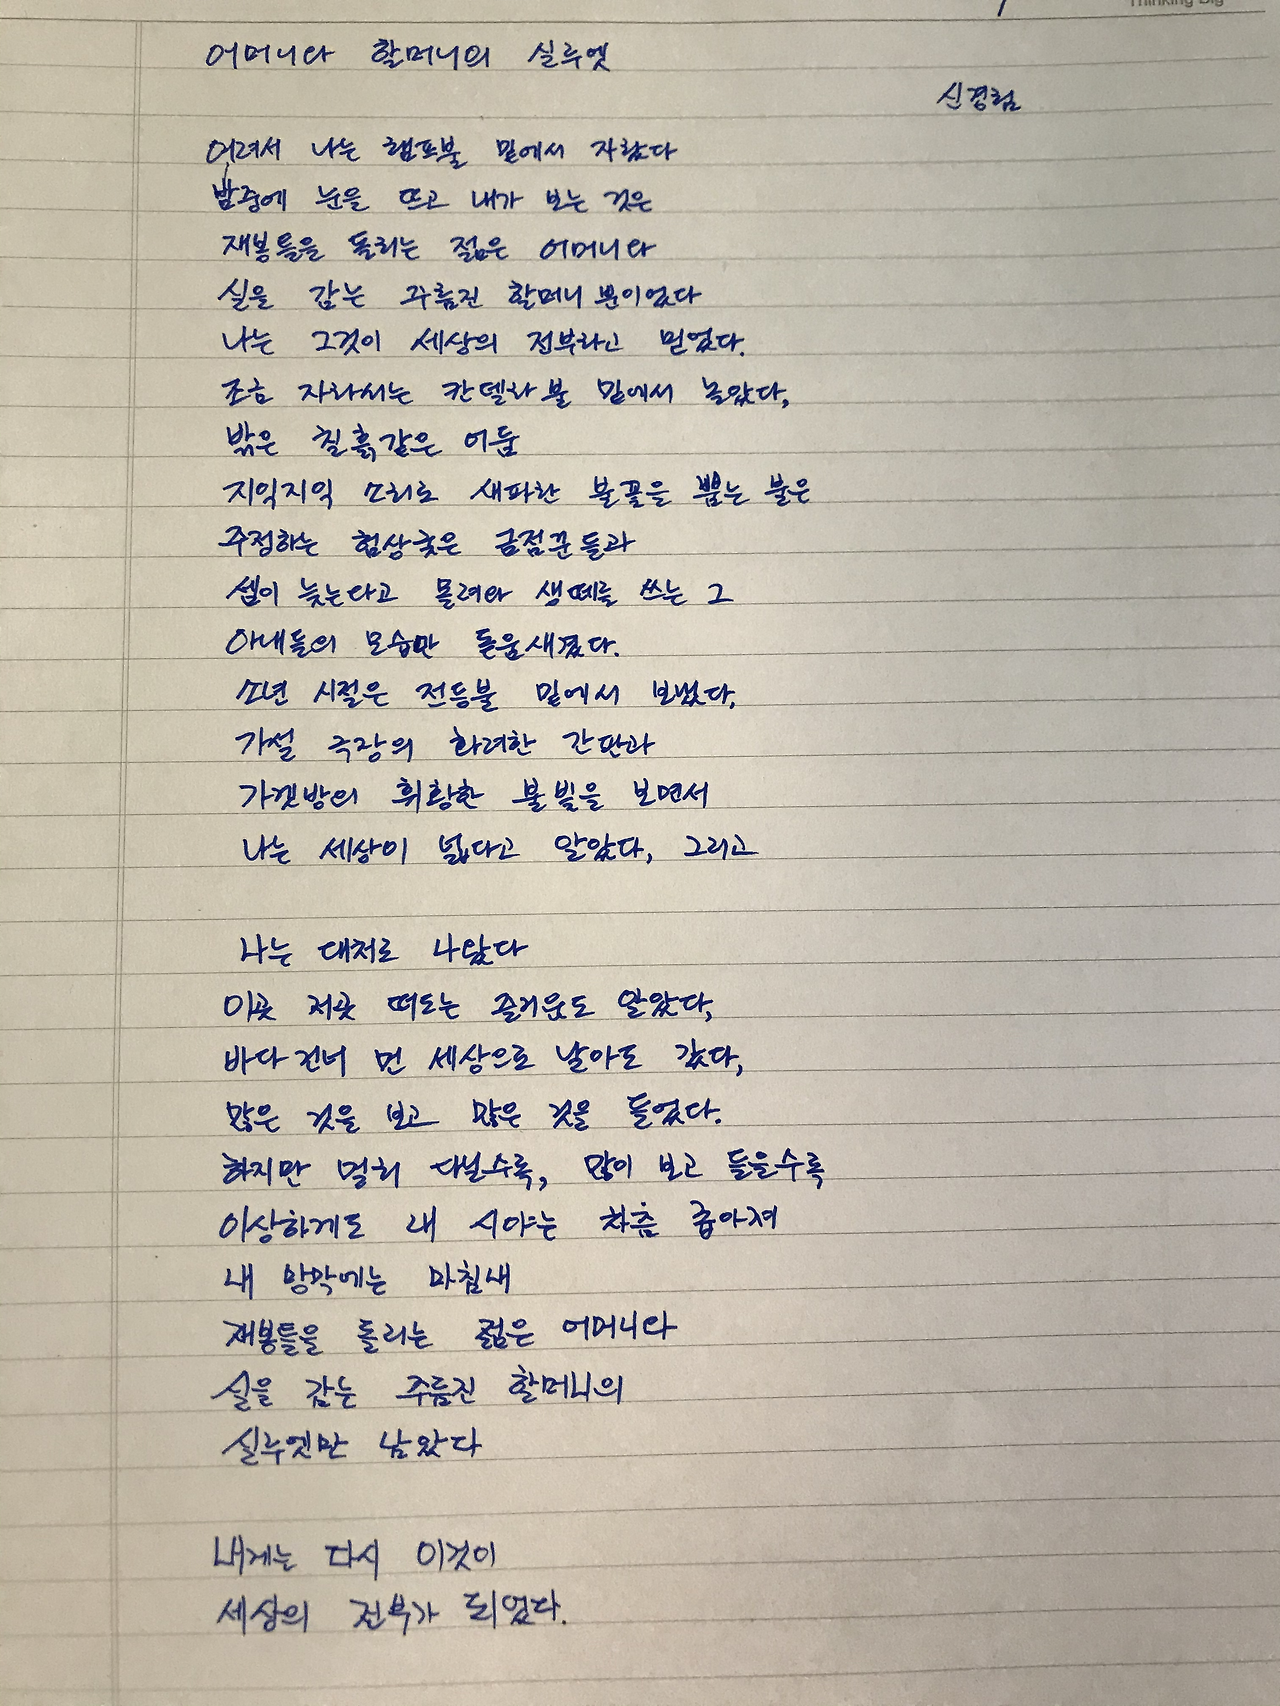 Thinking Big
어머니와 할머니의 실루엣
신경림
어려서 나는 램프불 밑에서 자랐다
밤중에 눈을 뜨고 내가 보는 것은
재봉틀을 돌리는 젊은 어머니와
실을 감는 주름진 할머니 뿐이었다
나는 그것이 세상의 전부라고 믿었다.
조금 자라서는 칸델라불 밑에서 놀았다,
밖은 칠흙같은 어둠
지익지익 소리로 새파란 불꽃을 뿜는 불은
주정하는 험상궂은 금점꾼들과
셈이 늦는다고 몰려와 생떼를 쓰는 그
아내들의 모습만 돋움새겼다.
소년 시절은 전등불 밑에서 보냈다,
가설 극장의 화려한 간판과
가겟방의 휘황한 불빛을 보면서
나는 세상이 넓다고 알았다, 그리고
나는 대처로 나왔다
이곳 저곳 떠도는 즐거움도 알았다,
바다 건너 먼 세상으로 날아도 갔다,
많은 것을 보고 많은 것을 들었다.
하지만 멀리 다닐수록, 많이 보고 들을수록
이상하게도 내 시야는 차츰 좁아져
내 망막에는 마침내
재봉틀을 돌리는 젊은 어머니와
실을 감는 주름진 할머니의
실루엣만 남았다
내게는 다시 이것이
세상의 전부가 되었다.